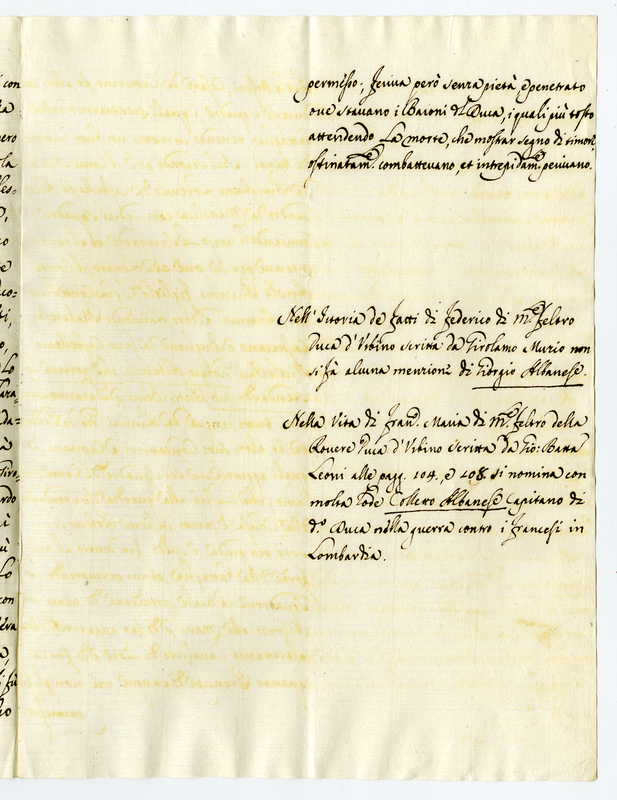 permesso; feriva però senza pietà, e penetrato
ove stavano i Baroni del Duca, i quali più tosto
attendendo La morte, che mostrar segno di timore
ostinatam.e combattevano, et intrepidam.e perivano.
Nell' Istoria de fatti di Federico di M.e feltro
Duca d'Urbino scritta da Girolamo Muzio non
si fà alcuna menzione di Giorgio Albanese.
Nella Vita di Fran.o Maria di M.e feltro della
Rovere Duca d'Urbino scritta da Gio: Batta
Leoni alle pagg. 104. e 108. si nomina con
molta Lode Colletto Albanese Capitano di
d.o Duca nella guerra contro i francesi in
Lombardia.